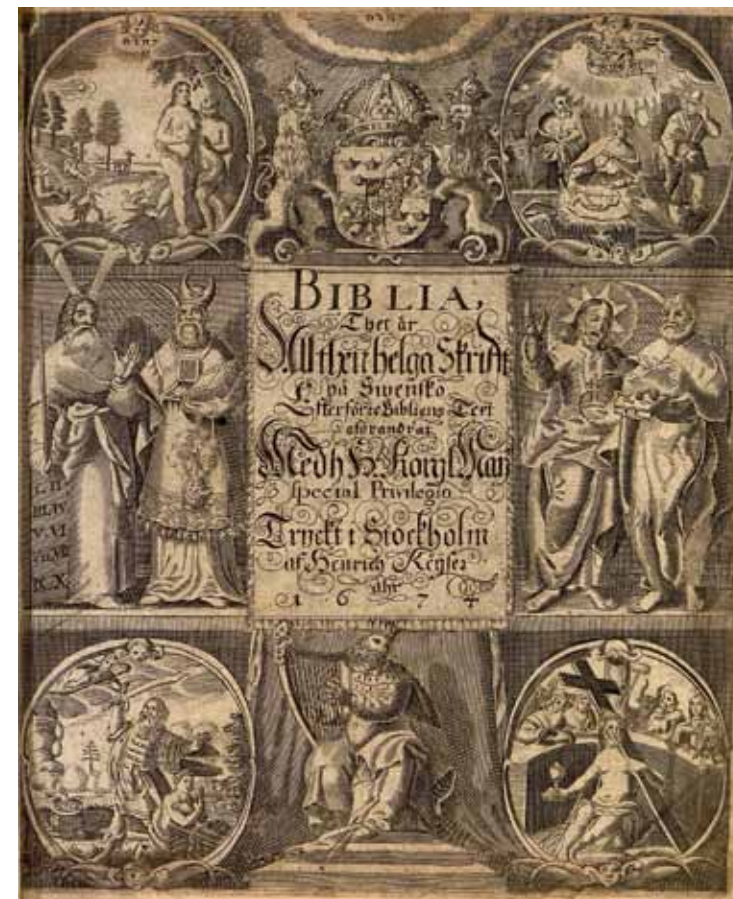 BIBLIA,
Thet är
All then helga Skrifft
på Swensko
Effter förre Bibliens Text
oförandrat
Medh K. Kongl May
special Privilegio
Tryckt i Stockholm
af Henrich Keyser
åhr
1 6 7 4
I. II
III. IV
V. VI
VII. VIII
IX. X